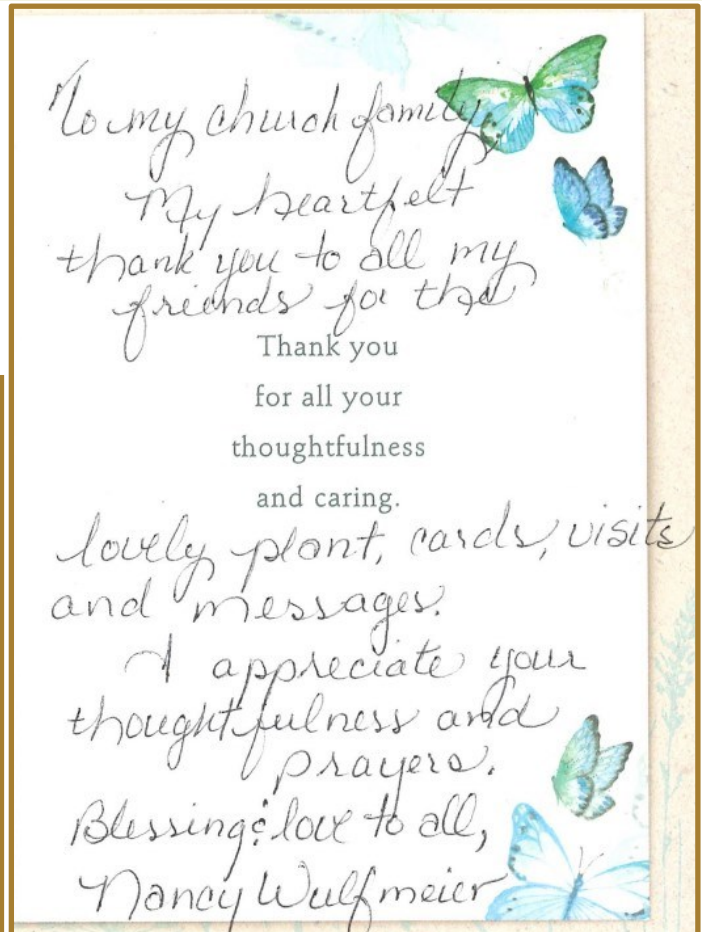 To my church family,
My heartfelt
thank you to all my
friends for the
Thank you
for all your
thoughtfulness
and caring.
lovely plant, cards, visits
and messages.
I appreciate your
thoughtfulness and
prayers.
Blessing & love to all,
Nancy Wulfmeier